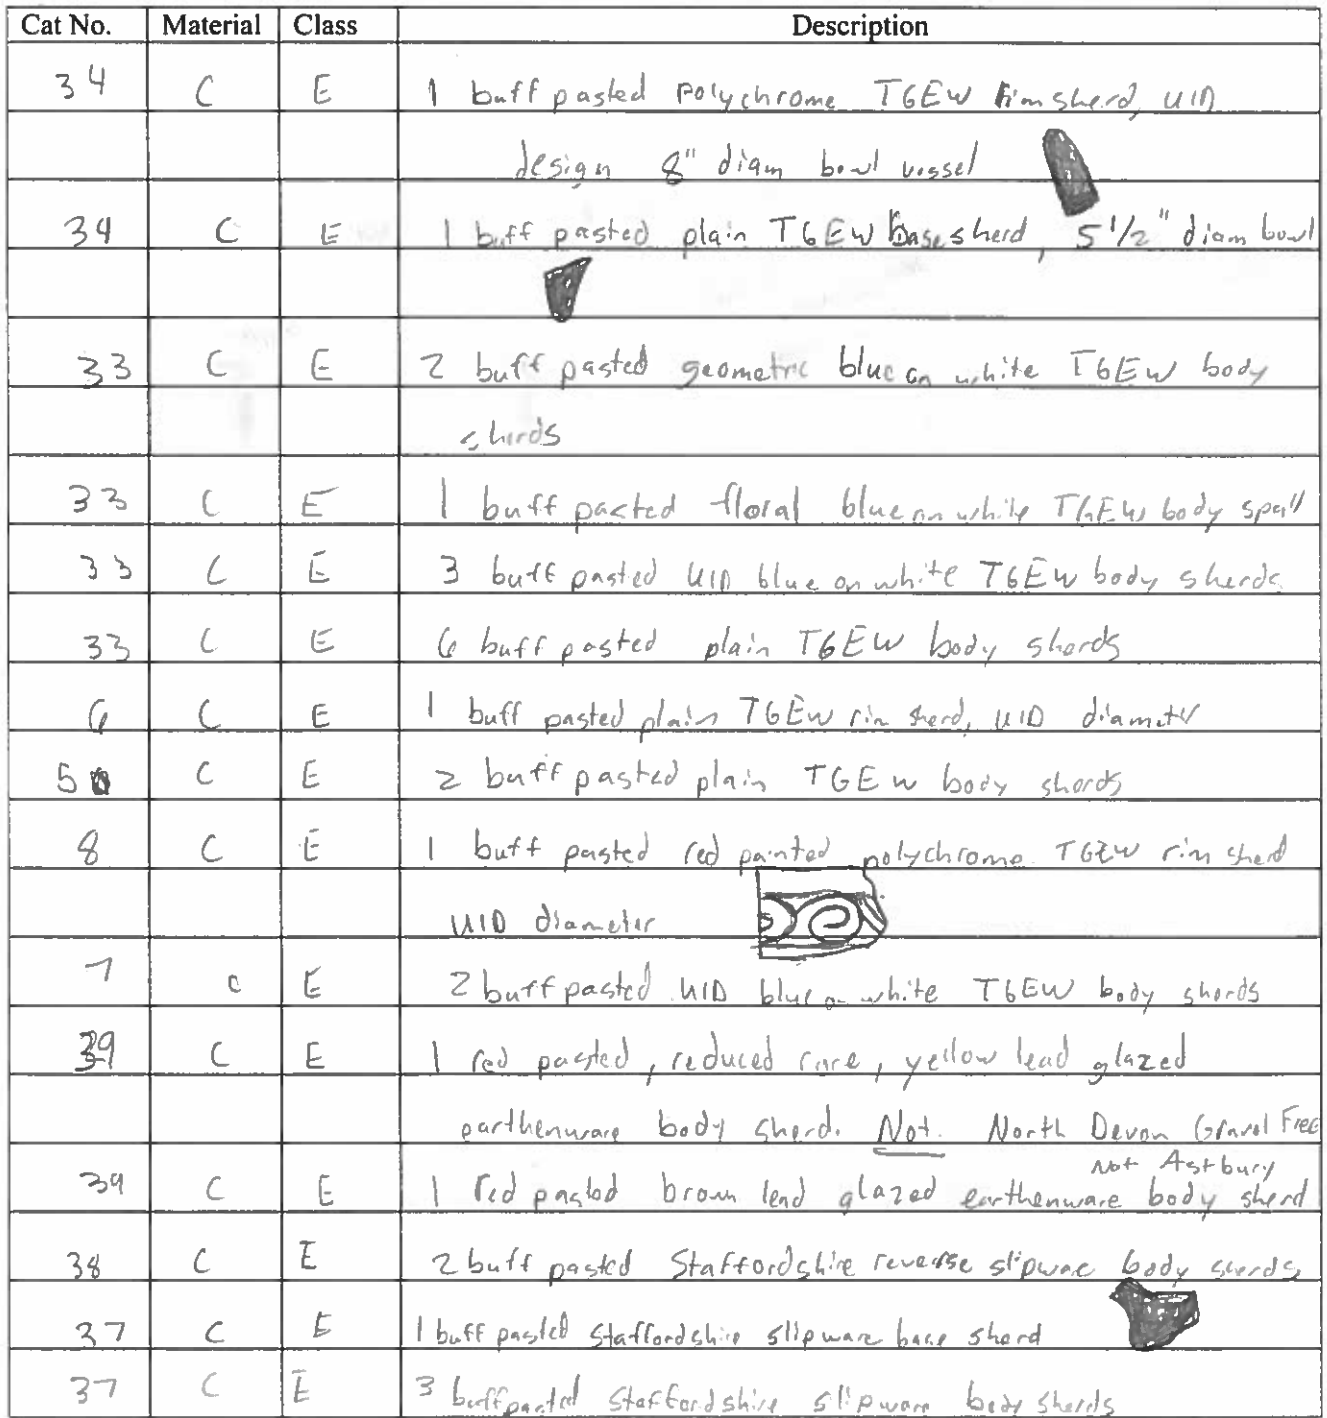 Cat No. Material Class Description
34 C E 1 buff pasted polychrome TGEW rim sherd, UID
design 8" diam bowl vessel
34 C E 1 buff pasted plain TGEW base sherd, 5 1/2" diam bowl
33 C E 2 buff pasted geometric blue on white TGEW body
sherds
33 C E 1 buff pasted floral blue on white TGEW body spall
33 C E 3 buff pasted UID blue on white TGEW body sherds
33 C E 6 buff pasted plain TGEW body sherds
6 C E 1 buff pasted plain TGEW rim sherd, UID diameter
5 C E 2 buff pasted plain TGEW body sherds
8 C E 1 buff pasted red painted polychrome TGEW rim sherd
UID diameter
7 C E 2 buff pasted UID blue on white TGEW body sherds
39 C E 1 red pasted, reduced core, yellow lead glazed
earthenware body sherd. Not North Devon Gravel Free
Not Astbury
39 C E 1 red pasted brown lead glazed earthenware body sherd
38 C E 2 buff pasted Staffordshire reverse slipware body sherds
37 C E 1 buff pasted Staffordshire slipware base sherd
37 C E 3 buff pasted Staffordshire slipware body sherds